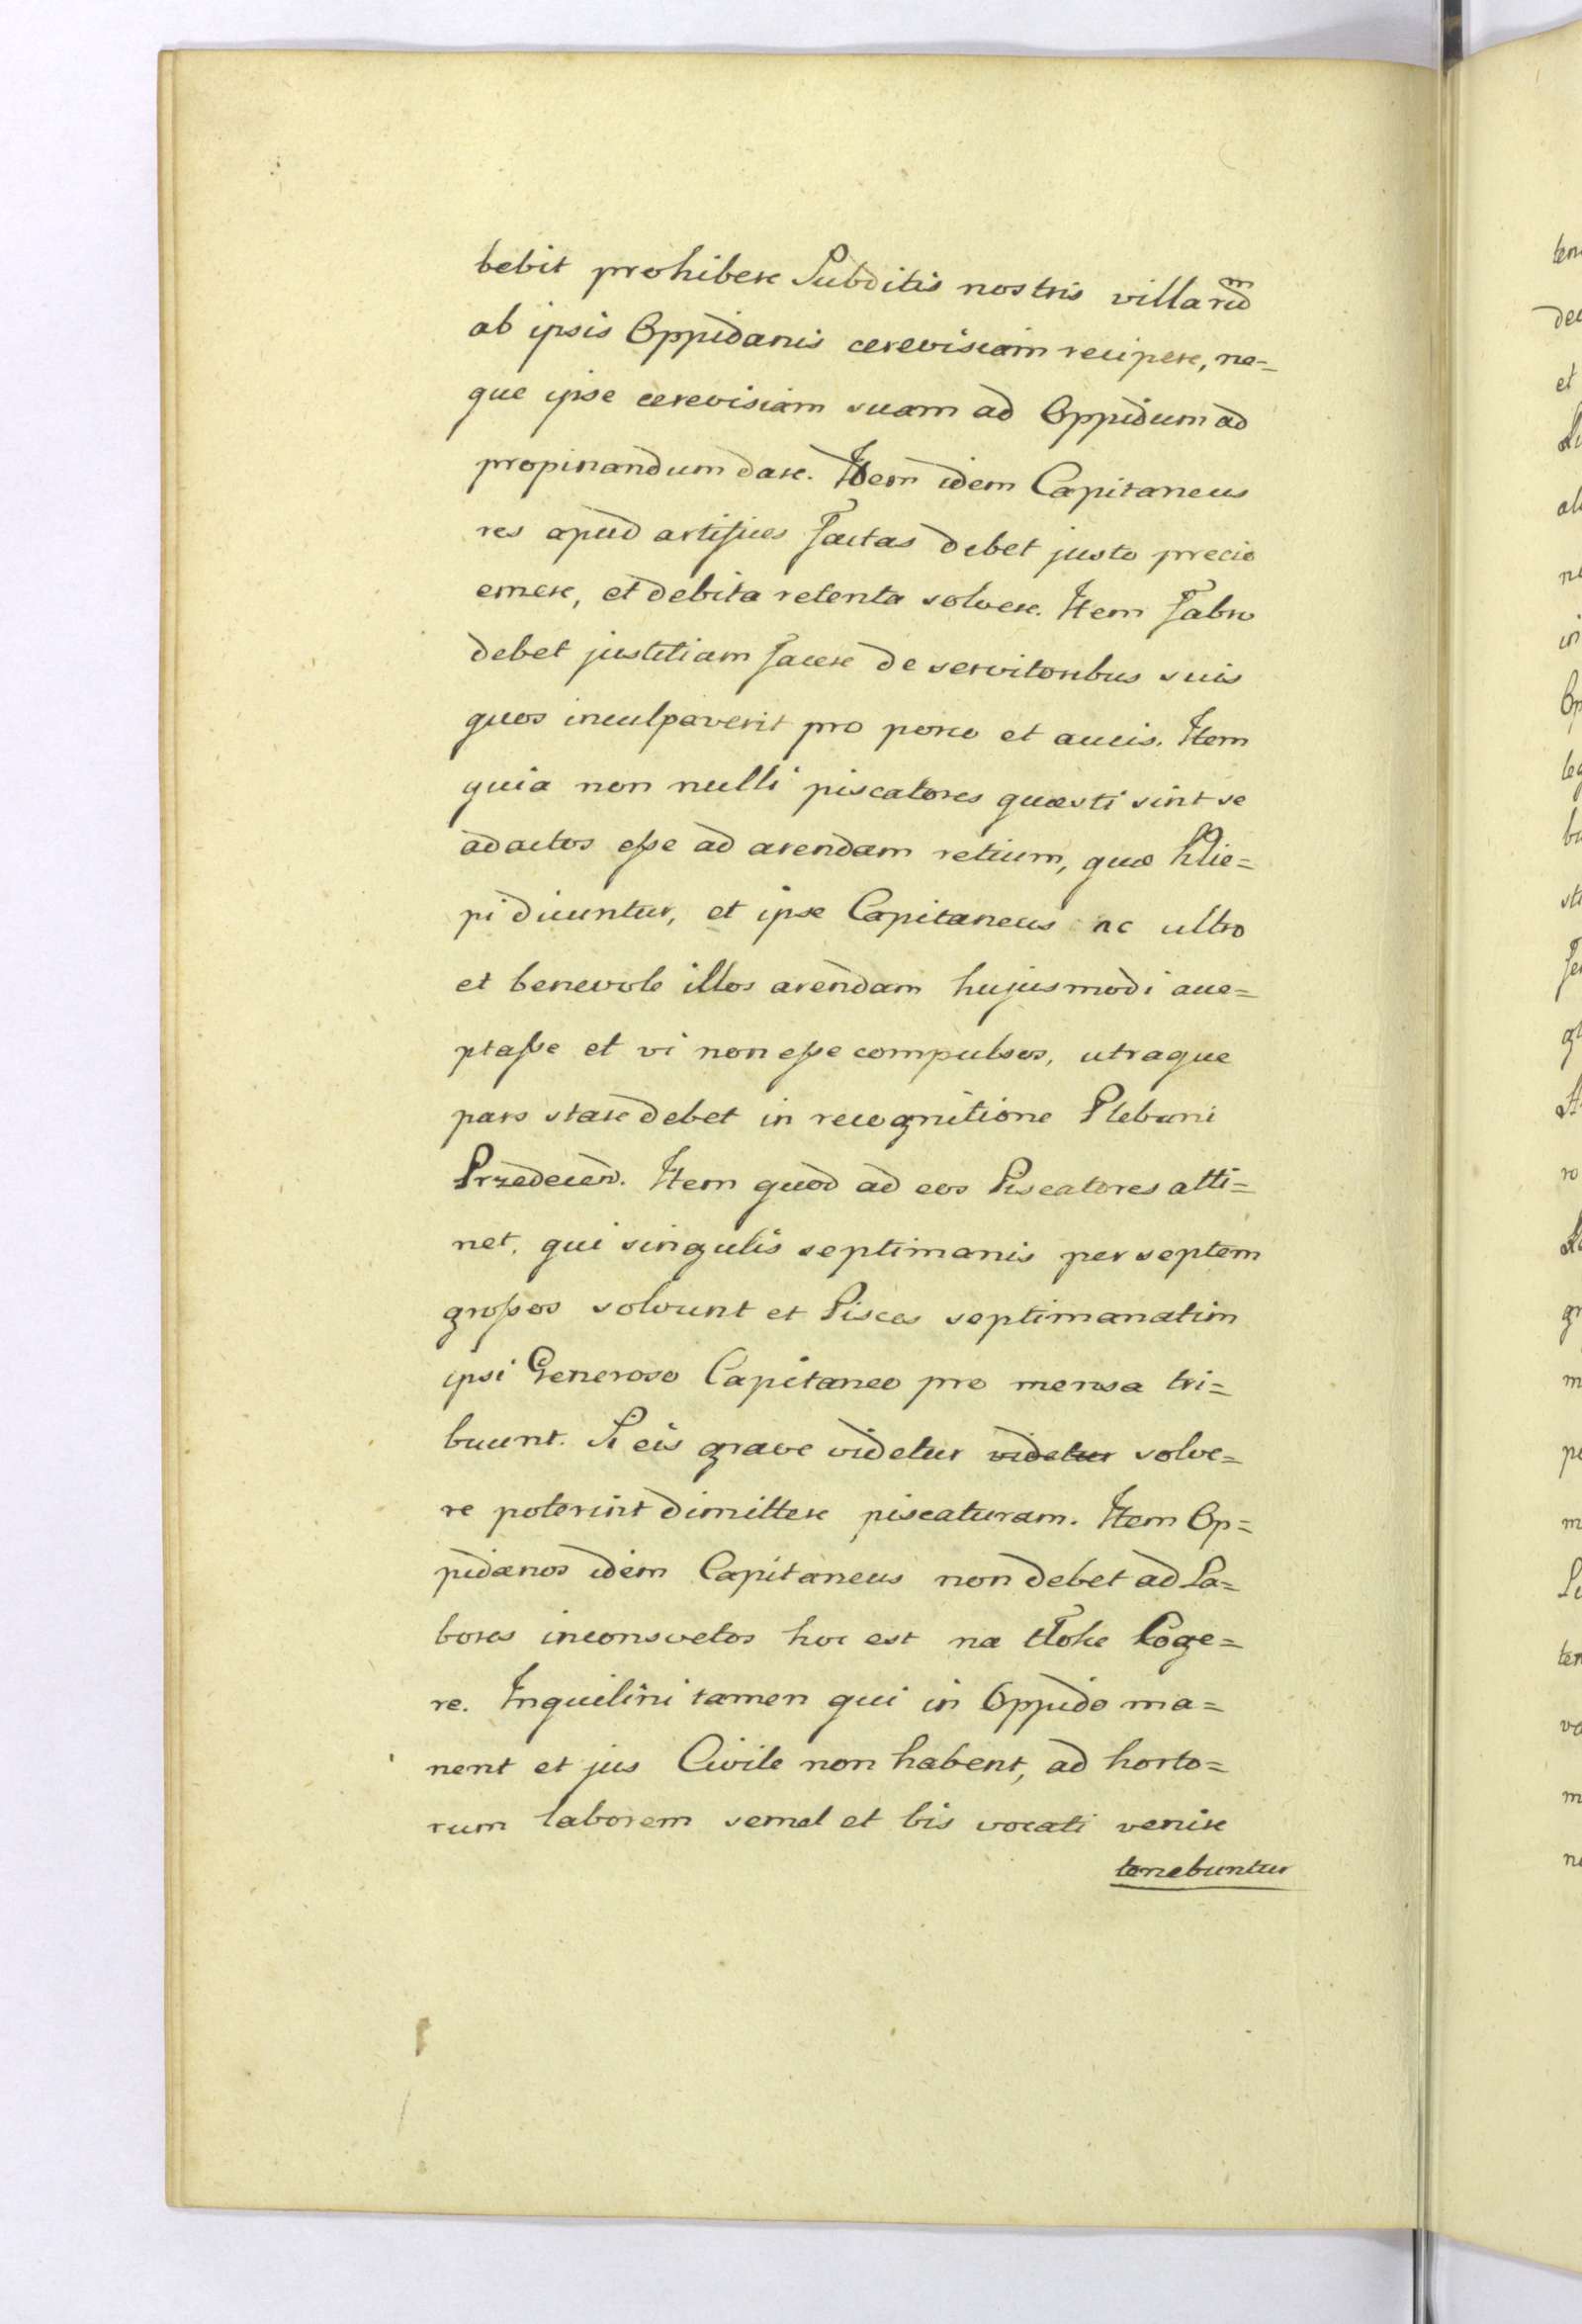 bebit prohibere Subditis nostris villarum
ab ipsis Oppidanis cerevisiam recipere, ne=
que ipse cerevisiam suam ad Oppidum ad
propinandum dare. Item idem Capitaneus
res apud artifices factas debet justo precio
emere, et debita retenta solvere. Item Fabro
debet justitiam facere de servitoribus suis
quos inculpaverit pro porco et aucis. Item
quia non nulli piscatores quæsti sint se
adactos esse ad arendam retium, quæ Klie=
pi dicuntur, et ipse Capitaneus ac ultro
et benevole illos arendam hujusmodi acce=
ptasse et vi non esse compulsos, utraque
pars stare debet in recognitione Plebani
Przedecen. Item quod ad eos Piscatores atti=
net, qui singulis septimanis per septem
grossos solvunt et Pisces septimanatim
ipsi Generoso Capitaneo pro mensa tri=
buunt. Si eis grave videtur videtur solve=
re poterint dimittere piscaturam. Item Op=
pidanos idem Capitaneus non debet ad La=
bores inconsvetos hoc est na tłoke Coge=
re. Inquilini tamen qui in Oppido ma=
nent et jus Civile non habent, ad horto=
rum laborem semel et bis vocati venire
tenebuntur